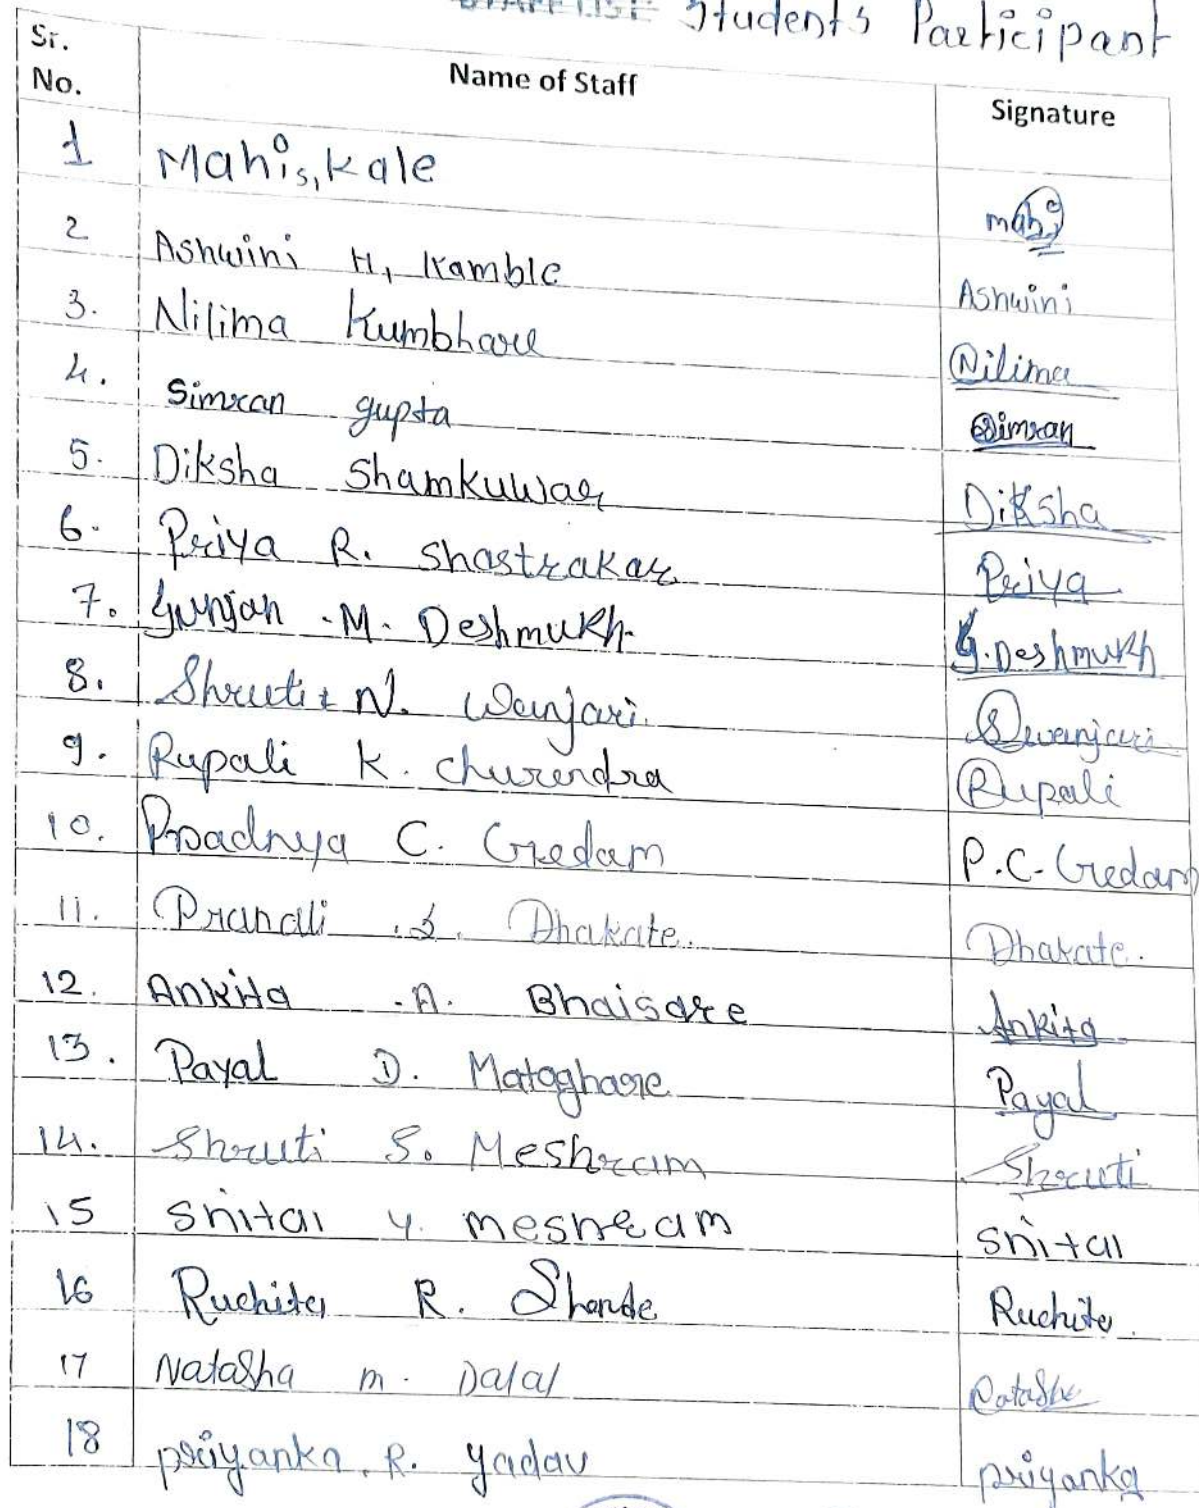 STAFF LIST Students Participant
Sr. No. Name of Staff Signature
1 Mahi s, Kale mahi
2 Ashwini H, Kamble Ashwini
3. Nilima Kumbhare Nilima
4. Simran gupta Simran
5. Diksha Shamkuwar Diksha
6. Priya R. Shastrakar Priya
7. Gunjan .M. Deshmukh. G.Deshmukh
8. Shruti N. Wanjari. Swanjari
9. Rupali K. churendra Rupali
10. Pradnya C. Gedam P.C. Gedam
11. Pranali .S. Dhakate. Dhakate.
12. Ankita .A. Bhaisare Ankita
13. Payal D. Mataghare Payal
14. Shruti S. Meshram Shruti
15 Shital Y. meshram Shital
16 Ruchita R. Shende Ruchita.
17 Natasha m. Dalal Natasha
18 priyanka. R. yadav priyanka